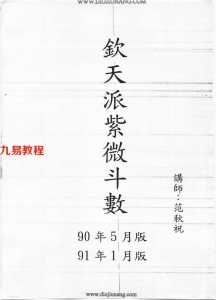 www.diojiuang.com
欽天派紫微斗數
90年5月版
91年1月版
講師：范秋祝
九易教程
www.diojiuang.com